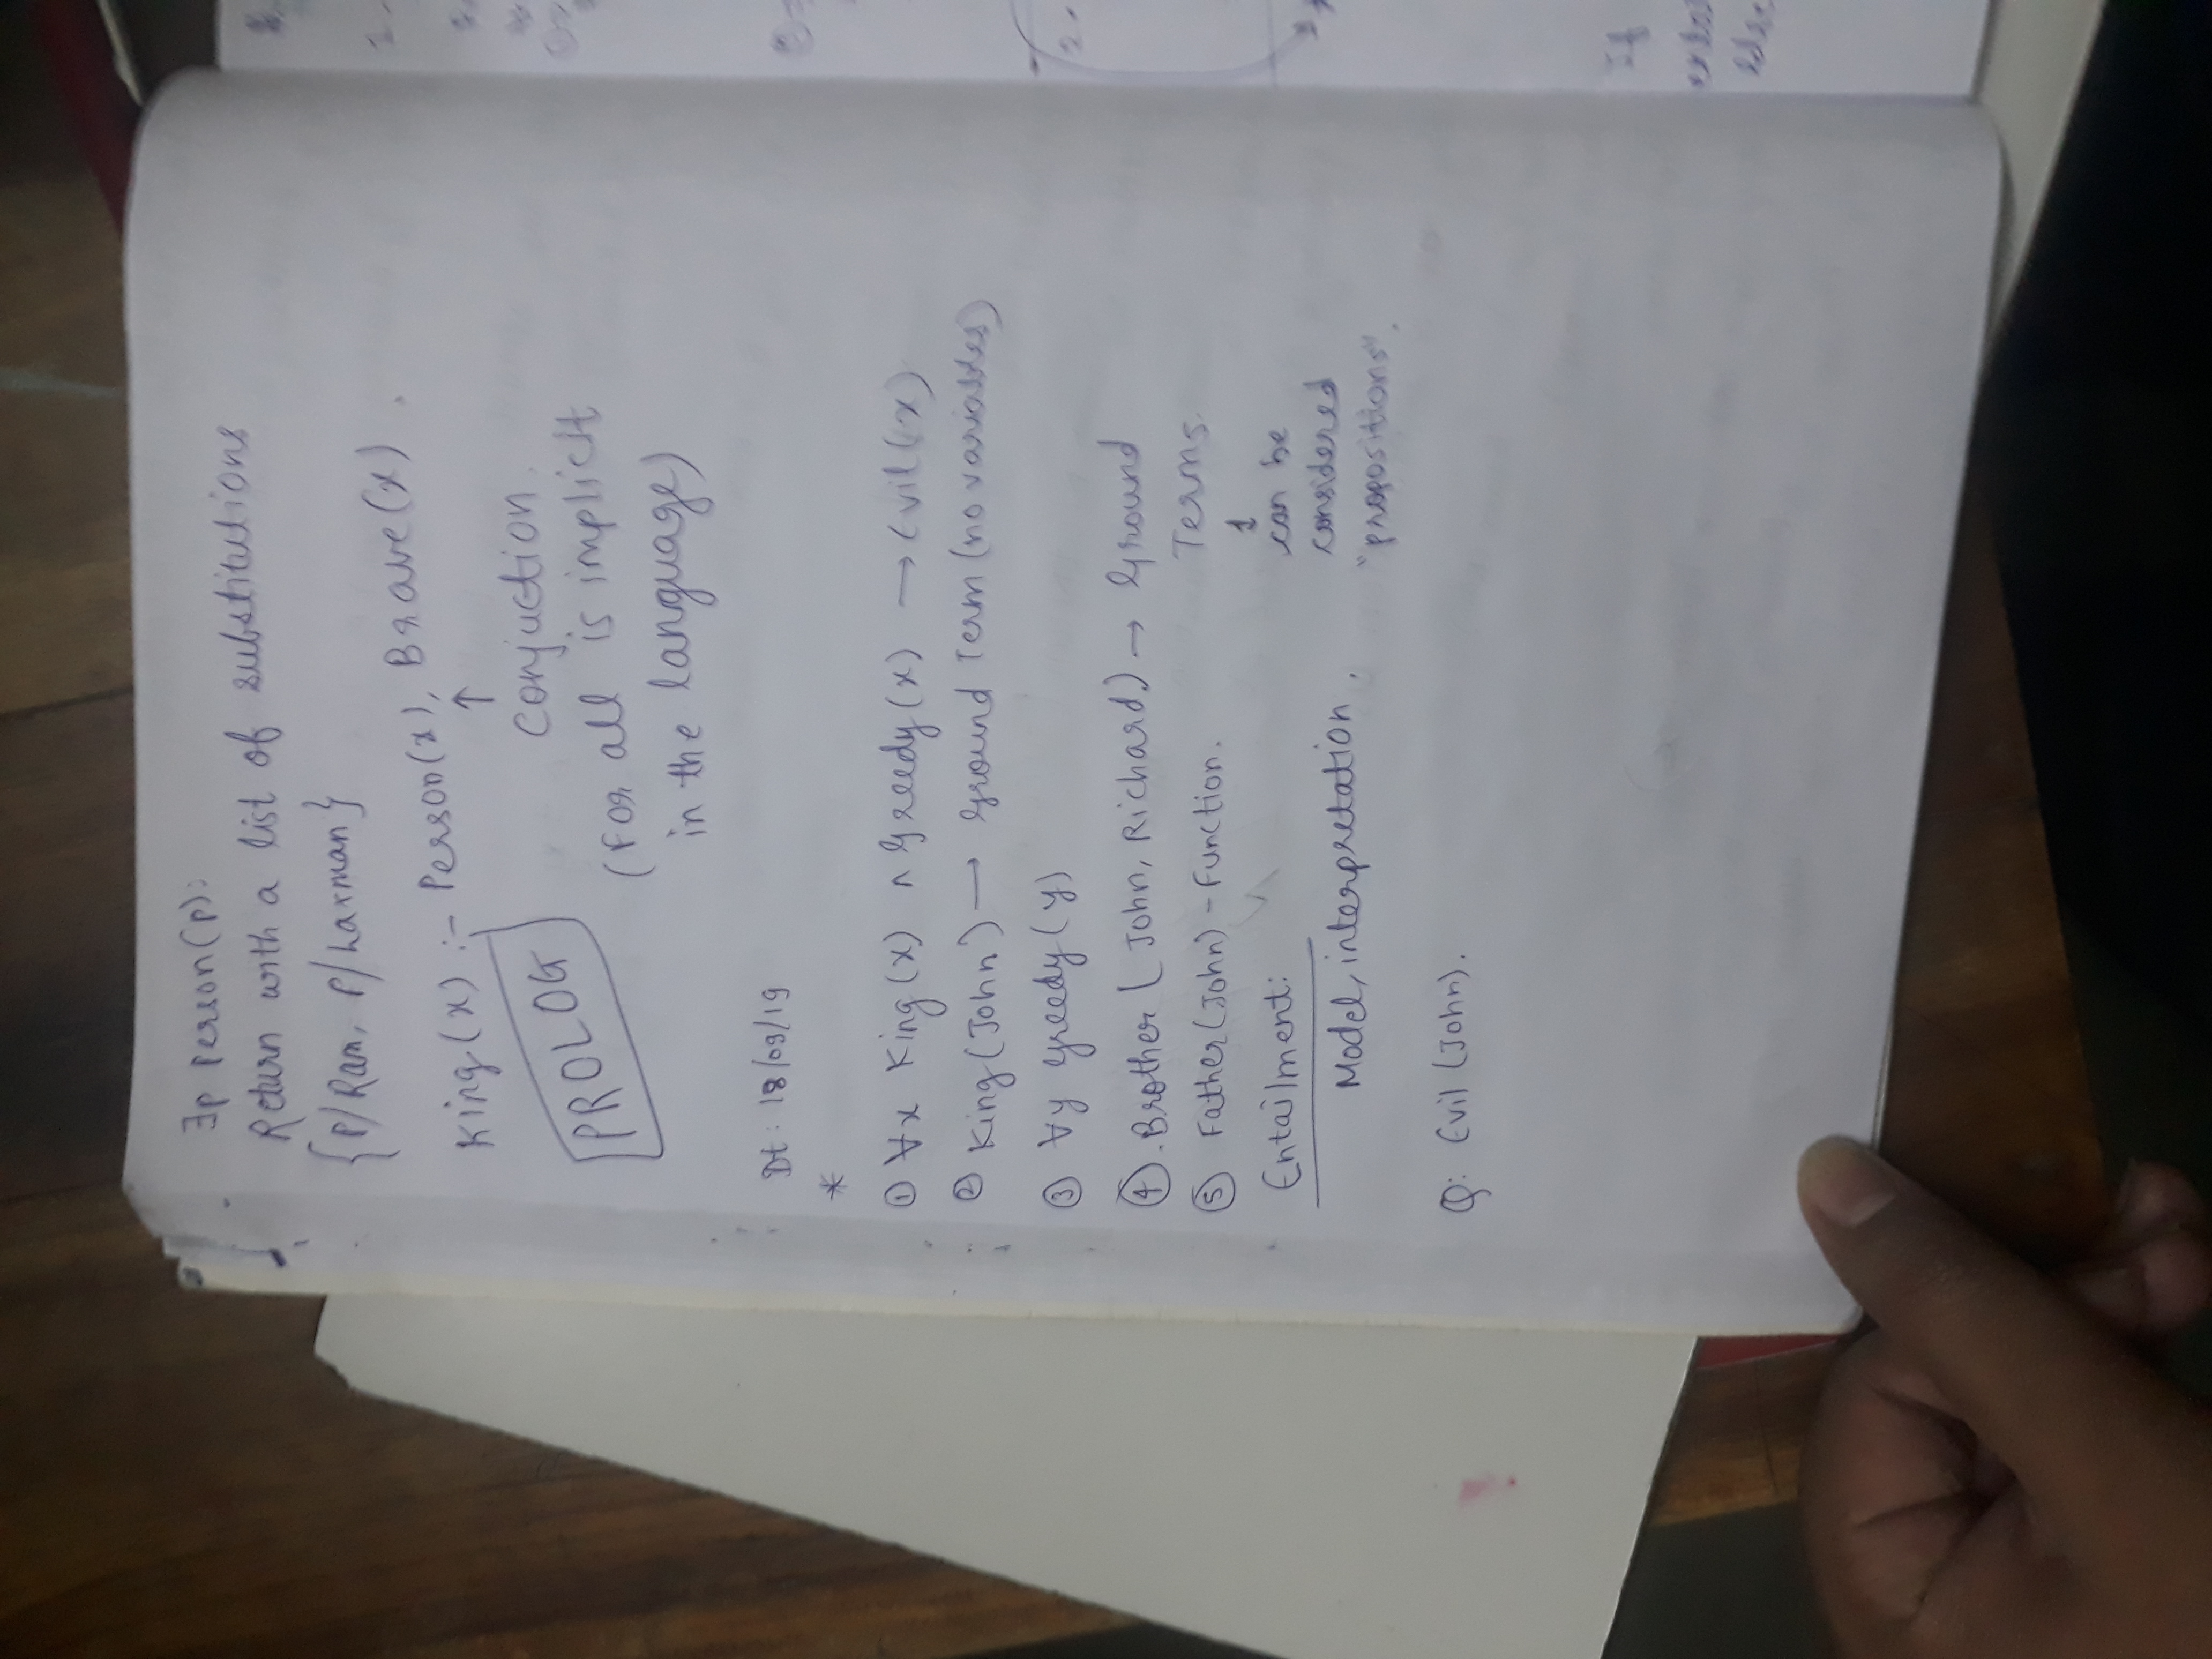 ∃p Person(p):
Return with a list of substitutions
{P/Ram, P/Laxman}
King(x) :- Person(x), Brave(x).
↑
Conjuction.
PROLOG
(For all is implicit
in the language)
Dt: 18/09/19
*
① ∀x King(x) ∧ Greedy(x) → Evil(x)
② King(John) → Ground Term (no variables)
③ ∀y Greedy(y)
④ Brother (John, Richard) → Ground
Terms.
⑤ Father(John) - Function.
can be
considered
"propositions".
Entailment:
Model, interpretation.
Q: Evil (John).
2.
If